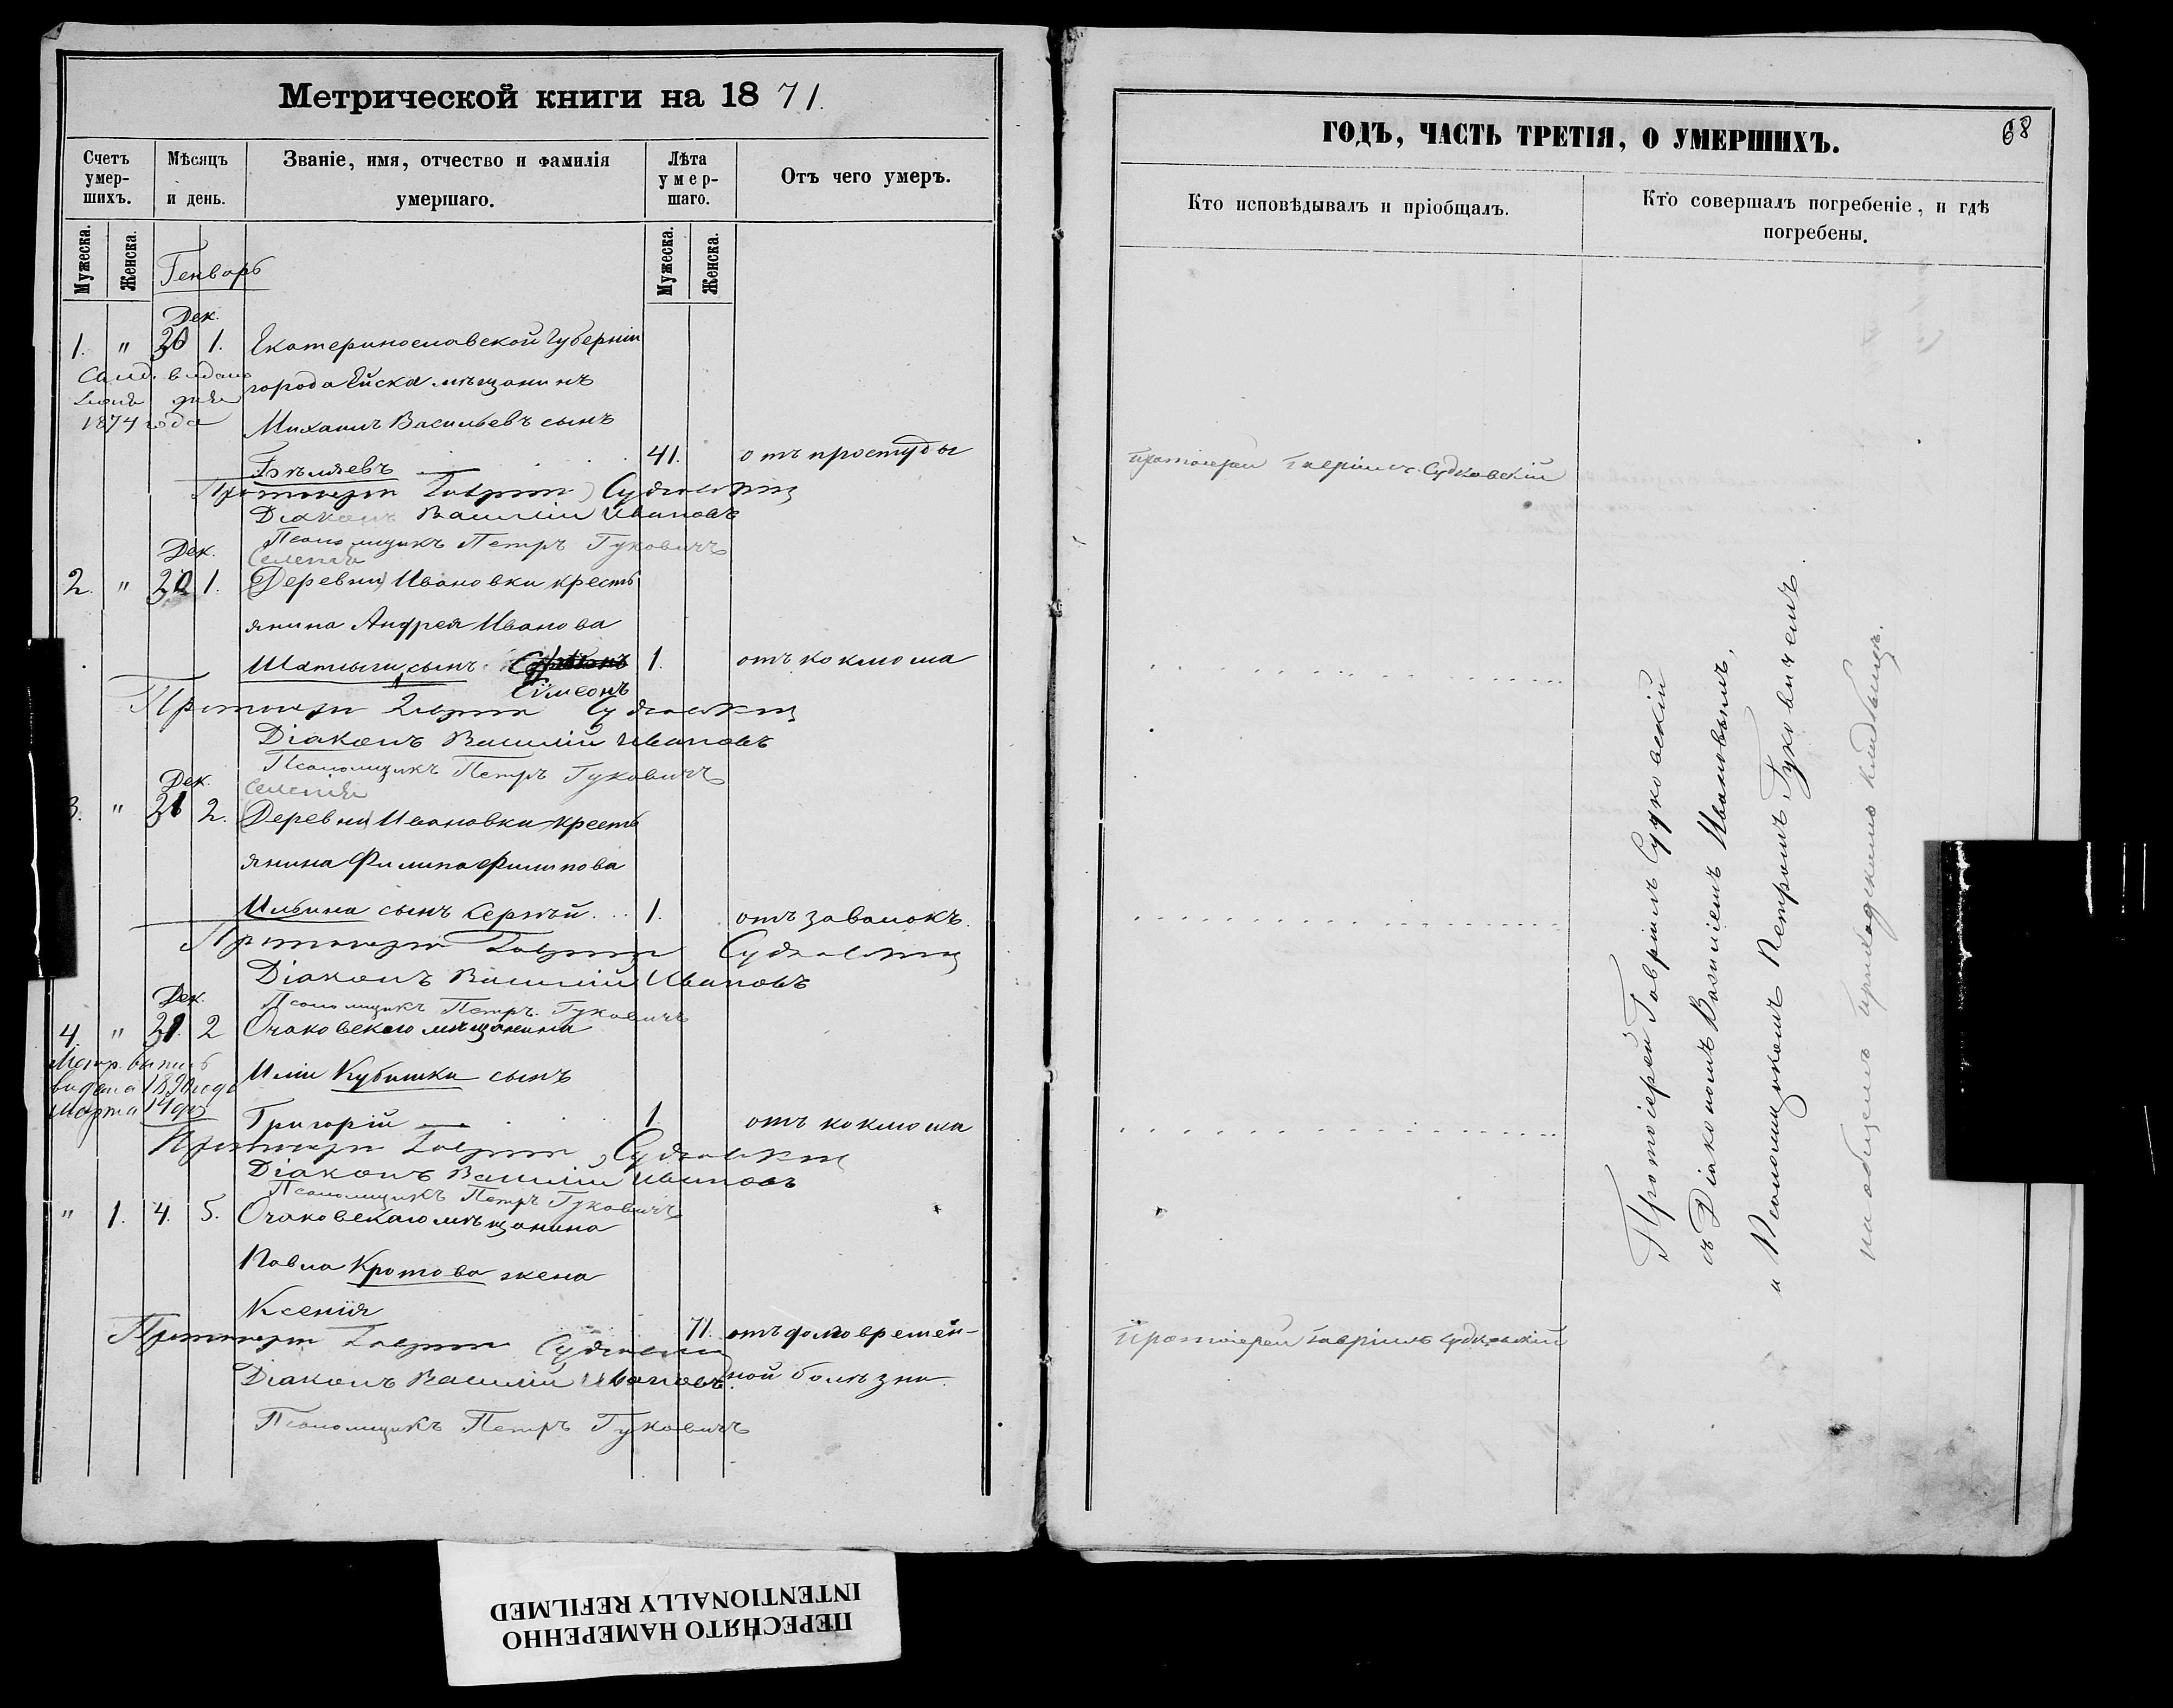 Метрической книги на 1871.
Счетъ умер-шихъ.
Мѣсяцъ и день.
Званіе, имя, отчество и фамилія умершаго.
Лѣта умер-шаго.
Отъ чего умеръ.
Мужеска.
Женска.
Мужеска.
Женска.
Генварь
Дек.
1. " 30 1. Екатеринославской Губерніи
города Ейска мѣщанинъ
1874 года
Михаилъ Васильевъ сынъ
Бѣляевъ 41. отъ простуды
Протоіерей Гавріилъ Судковскій
Діаконъ Василій Ивановъ
Псаломщикъ Петръ Гуковичъ
Дек. Селенія
2. " 30 1. Деревни Ивановки кресть
янина Андрея Иванова
Шатыги сынъ 1. отъ коклюша
Сімеонъ
Протоіерей Гавріилъ Судковскій
Діаконъ Василій Ивановъ
Псаломщикъ Петръ Гуковичъ
Дек. Селенія
3. " 31 2. Деревни Ивановки кресть
янина Филипа Филипова
Ильина сынъ Сергѣй 1. отъ завалокъ.
Протоіерей Гавріилъ Судковскій
Діаконъ Василій Ивановъ
Дек.
Псаломщикъ Петръ Гуковичъ
4. " 31. 2 Очаковскаго мѣщанина
Метр. выпись
выдана 1890 года
Марта 14 дня
Иліи Кубышки сынъ
Григорій 1. отъ коклюша
Протоіерей Гавріилъ Судковскій
Діаконъ Василій Ивановъ
Псаломщикъ Петръ Гуковичъ
" 1. 4. 5. Очаковскаго мѣщанина
Павла Кротова жена
Ксенія 71. отъ долговремен-
ной болѣзни.
Протоіерей Гавріилъ Судковскій
Діаконъ Василій Ивановъ.
Псаломщикъ Петръ Гуковичъ
ГОДЪ, ЧАСТЬ ТРЕТІЯ, О УМЕРШИХЪ.
68
Кто исповѣдывалъ и пріобщалъ.
Кто совершалъ погребеніе, и гдѣ погребены.
Протоіерей Гавріилъ Судковскій
Протоіерей Гавріилъ Судковскій
Протоіерей Гавріилъ Судковскій
съ Діакономъ Василіемъ Ивановымъ,
и Псаломщикомъ Петромъ Гуковичемъ.
на общемъ приходскомъ кладбищѣ.
ПЕРЕСНЯТО НАМЕРЕННО
INTENTIONALLY REFILMED